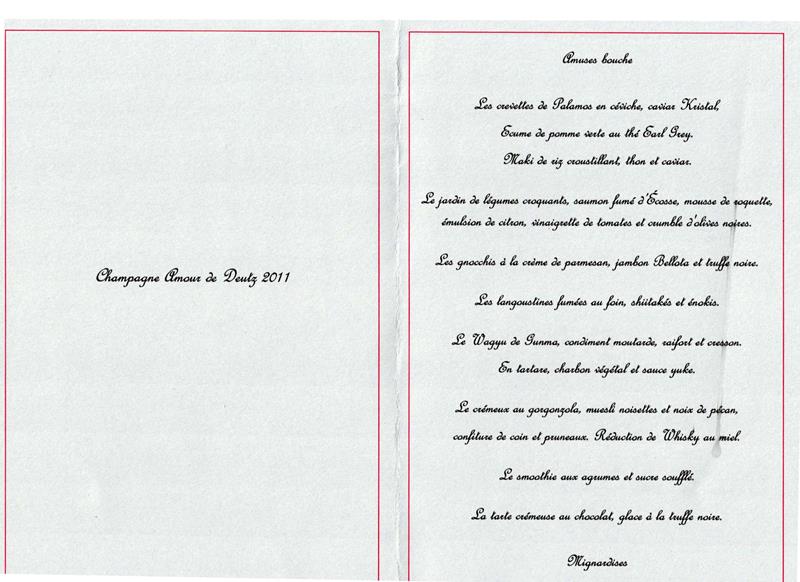 Champagne Amour de Deutz 2011
Amuses bouche
Les crevettes de Palamos en céviche, caviar Kristal,
Ecume de pomme verte au thé Earl Grey.
Maki de riz croustillant, thon et caviar.
Le jardin de légumes croquants, saumon fumé d'Écosse, mousse de roquette,
émulsion de citron, vinaigrette de tomates et crumble d'olives noires.
Les gnocchis à la crème de parmesan, jambon Bellota et truffe noire.
Les langoustines fumées au foin, shiitakés et énokis.
Le Wagyu de Gunma, condiment moutarde, raifort et cresson.
En tartare, charbon végétal et sauce yuke.
Le crémeux au gorgonzola, muesli noisettes et noix de pécan,
confiture de coin et pruneaux. Réduction de Whisky au miel.
Le smoothie aux agrumes et sucre soufflé.
La tarte crémeuse au chocolat, glace à la truffe noire.
Mignardises